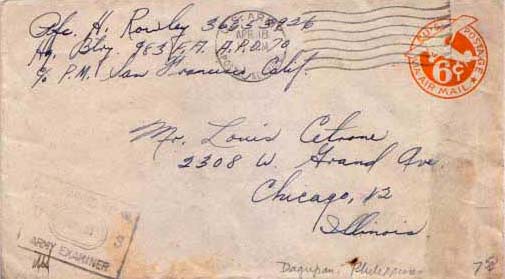 Pfc. H. Rowley 36653926
Hq. Btry. 983 F.A. A.P.O. 70
c/o P.M. San Francisco Calif.
U.S. ARMY
APR 18
VIA AIR MAIL
POSTAGE
6¢
Mr. Louis Cetrone
2308 W. Grand Ave.
Chicago, 12
Illinois
ARMY EXAMINER
Dagupan, Philippines